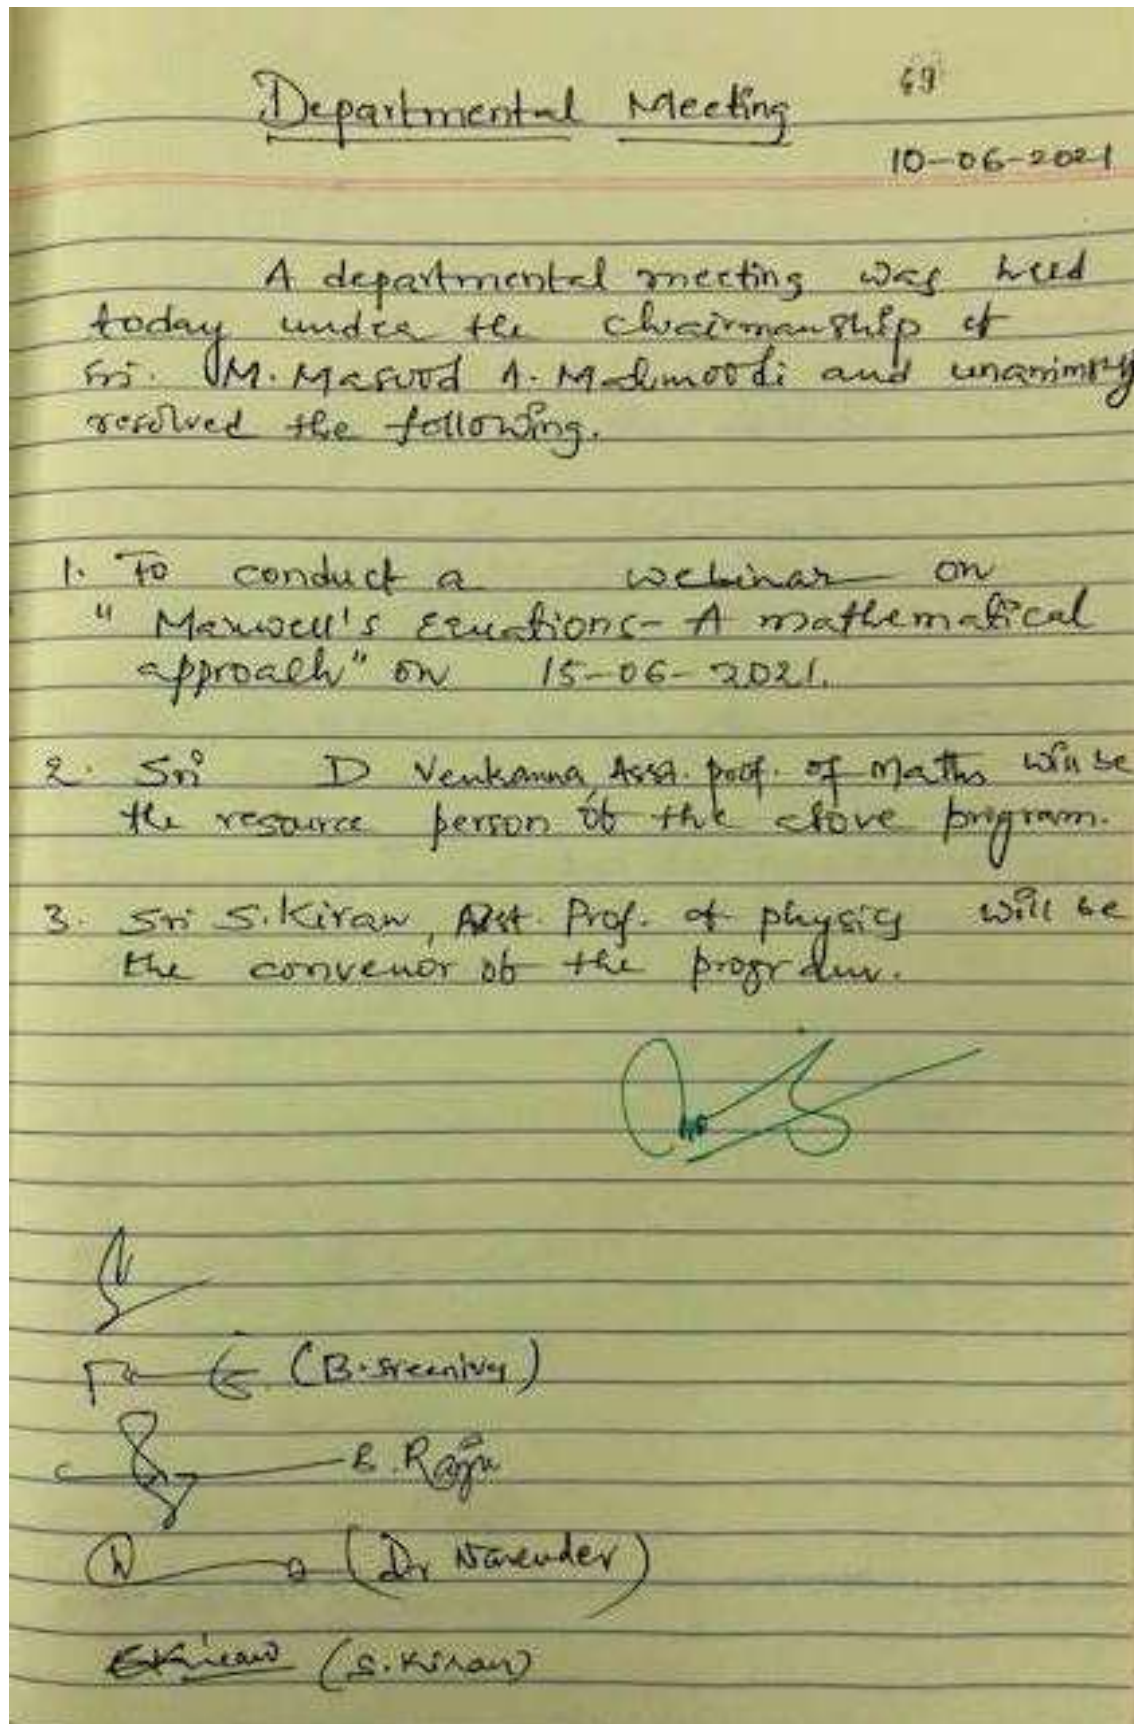 69
Departmental Meeting
10-06-2021
A departmental meeting was held
today under the chairmanship of
Sri. M. Masood A. Mahmoodi and unanimsly
resolved the following.
1. To conduct a webinar on
"Maxwell's Equations- A mathematical
approach" on 15-06-2021.
2. Sri D Venkanna, Asst. prof. of Maths will be
the resource person of the above program.
3. Sri S. Kiran, Asst. Prof. of physics will be
the convenor of the program.
(B. Sreenivas)
B. Raju
(Dr Narender)
SKiran (S. Kiran)